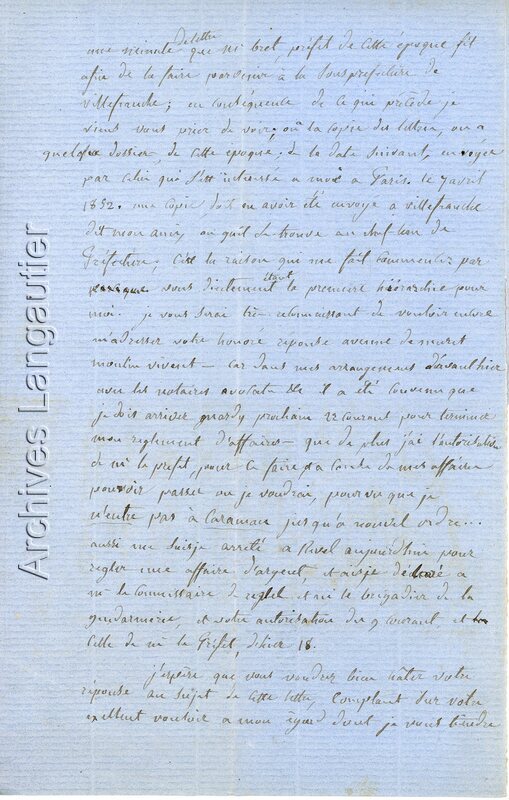 une minute de lettre que mr bret, préfet de cette époque fit
afin de la faire parvenir à la Souspréfecture de
villefranche ; en conséquence de ce qui précède je
viens vous prier de voir, ou la copie des lettres, ou a
quelque dossier, de cette époque, de la date suivant, envoyée
par celui qui s'est intéressé a moi a Paris. le 7 avril
1852. une copie, doit en avoir été envoyé a villefranche
dit mon ami, ou quil se trouve au chef lieu de
Préfecture ; C'est la raison qui me fait commencer par
vous directement étant la première hiérarchie pour
moi. je vous serai très reconnaissant de vouloir
m'adresser votre honoré réponse avenue de muret
moulin vivent – car dans mes arrangements d'avant hier
avec les notaires avocats il a été convenu que
je dois arriver mardy prochain 22 courant pour terminer
mon reglement d'affaires – que de plus j'ai l'autorisation
de mr le prefet, pour ce faire de mes affaires
pouvoir passer ou je voudrai, pourvu que je
n'entre pas à Caraman jusqu'à nouvel ordre...
aussi me suisje arreté a Revel aujourdhui pour
regler une affaire d'argent, et aije déclaré a
mr le Commissaire de et mr le brigadier de la
gendarmerie, et votre autorisation du 9 courant, et
cette de mr le Préfet, du 18.
j'espère que vous voudrez bien hâter votre
réponse au sujet de cette lettre, Comptant sur votre
exellent vouloir a mon égard dont je vous tiendre
Archives Langautier